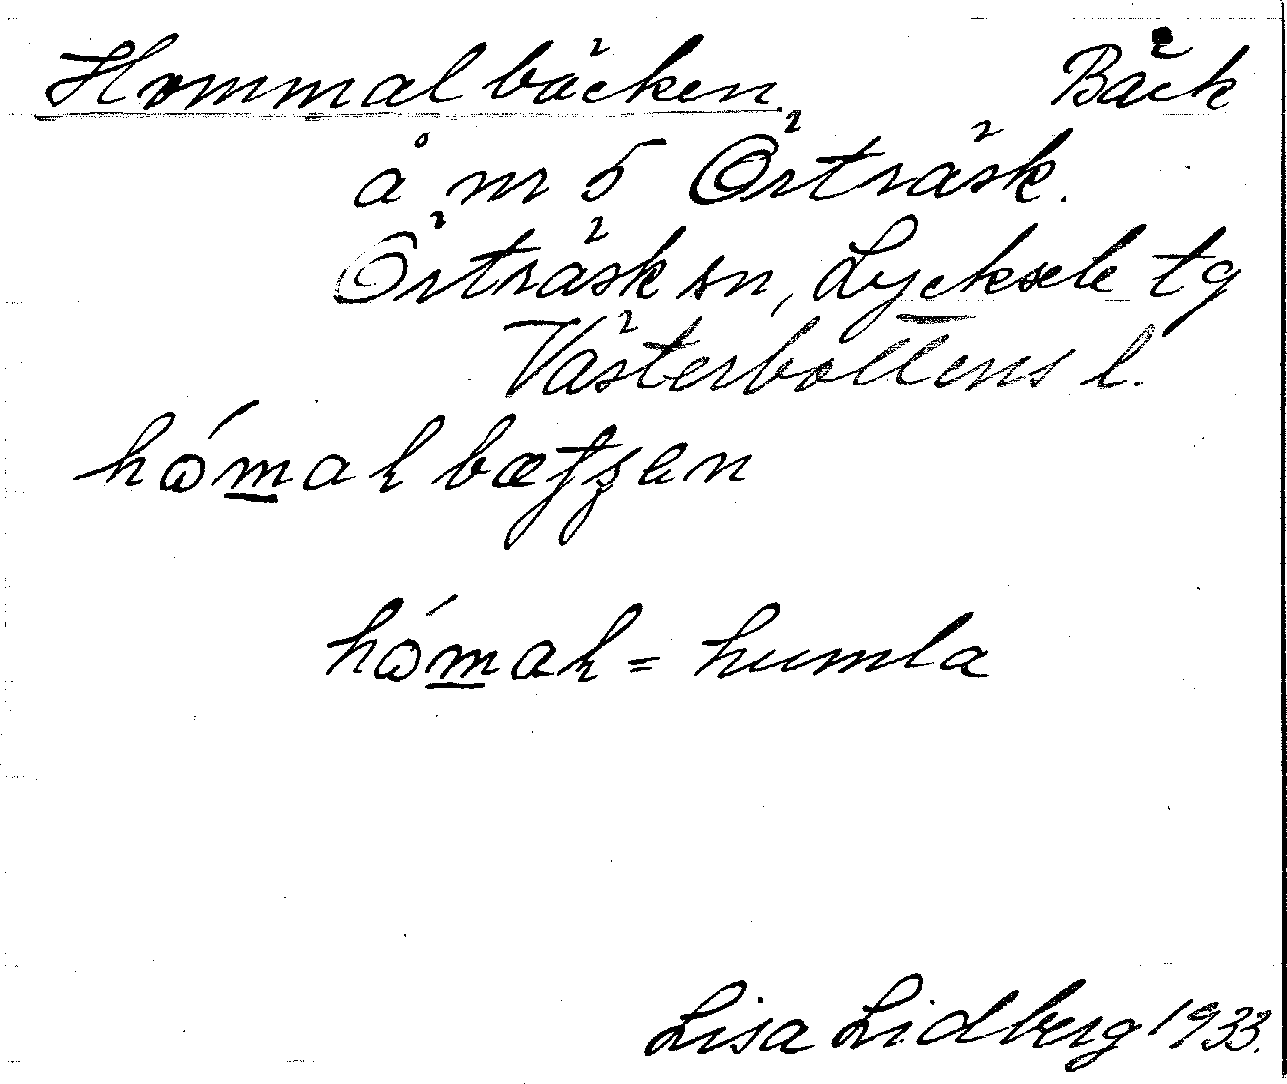 Hommalbäcken Bäck
å nr 5 Örträsk.
Örträsk sn, Lycksele tg
Västerbottens l.
hó̤m̲albætʂen
hó̤m̲al = humla
Lisa Lidberg 1933.